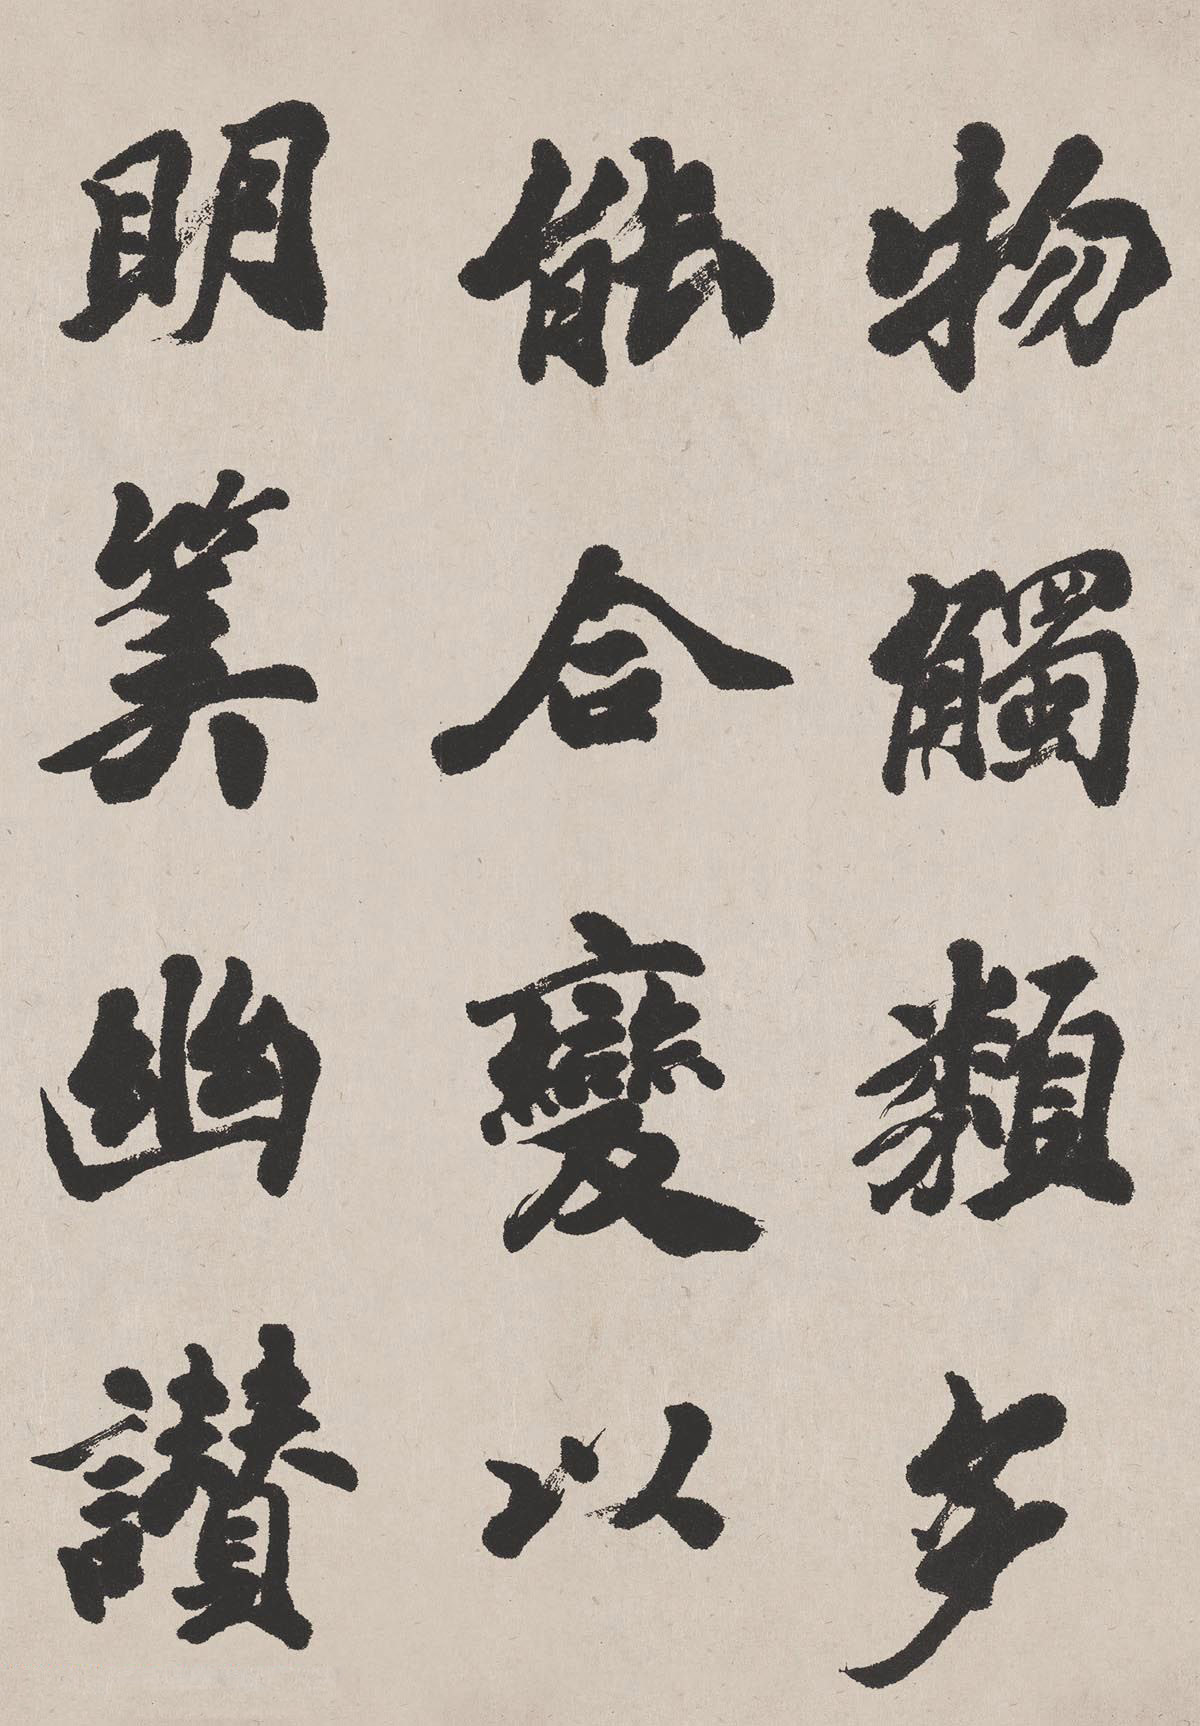 物觸類多
能合變以
明筭幽讚